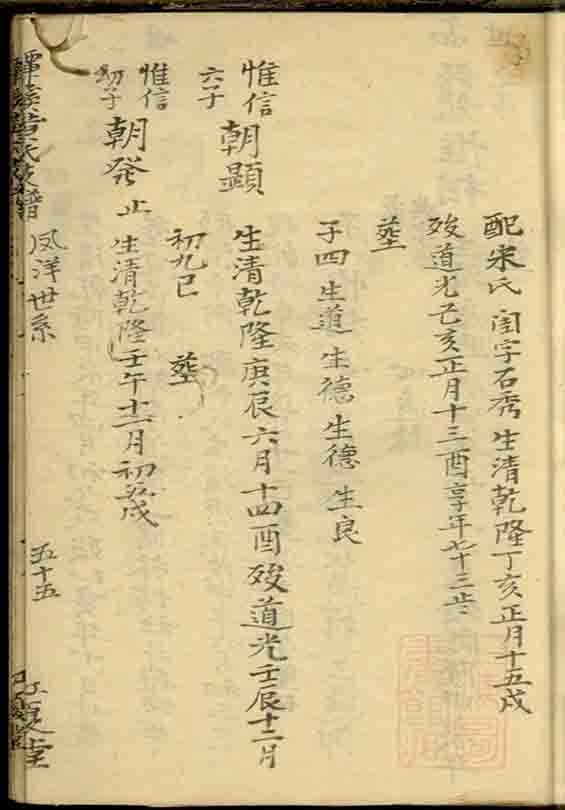 配宋氏 闺字石秀 生清乾隆丁亥正月十五戌
殁道光己亥正月十三酉享年七十三岁
塟
子四 生道 生德 生德 生良
惟信
六子
朝顯
生清乾隆庚辰六月十四酉殁道光壬辰十二月
初九巳 塟
惟信
幼子
朝發 止 生清乾隆壬午十二月初五戌
氏
譜
凤洋世系
五十五
堂